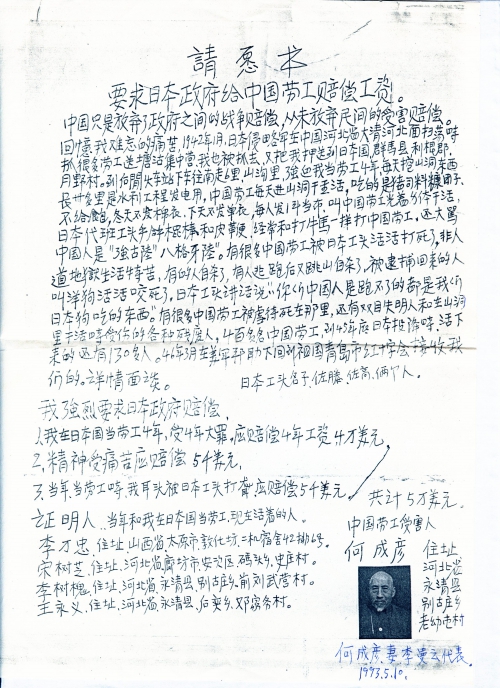 請愿书
要求日本政府给中国劳工赔偿工资。
中国只是放弃了政府之间的战争赔偿,从未放弃民间的受害赔偿。
回忆我难忘的痛苦,1942年1月,日本侵略军在中国河北省大清河北面扫荡時
抓很多劳工送塘沽集中营,我也被抓去,又把我押送到日本国群馬县利根郡
月野村。到后閑火车站下车往南走6里,山沟里,强迫我当劳工4年,每天挖山洞东西
长廿多里是水利工程发电用,中国劳工每天进山洞干重活,吃的是饲料糠团子,
不给飽,冬天不发棉衣、下天不发单衣,每人发1斗当布,叫中国劳工光着,
日本代班工头手持木棍棒和皮鞭,经常和打牛馬一样打中国劳工,还大罵
中国人是“强古隆”“八格牙隆”。有很多中国劳工被日本工头活活打死了,非人
道地狱生活4年苦,有的人自杀了,有人逃跑后又跳山自杀了,被逮捕回来的人
叫洋狗活活咬死了,日本工头讲话说“你们中国人是跑不了的都是我们
日本狗吃的东西”。有很多中国劳工被虐待死在那里,还有双目失明人和在山洞
里干活時受伤的各种残废人,4百多名中国劳工,到45年底日本投降時,活下
来的还有130名人。46年3月在美军幇助下回到祖国青島市紅十字会接收我
们的。详情面谈。
日本工头名子、佐滕、佐高、俩个人。
我强烈要求日本政府赔偿,
1,我在日本国当劳工4年,受4年大罪,应赔偿4年工资4万美元,
2,精神受痛苦应赔偿5千美元,
3,当年当劳工時,我耳头被日本工头打聋,应赔偿5千美元。
共计5万美元。
证明人..当年和我在日本国当劳工,现在活着的人。
李万忠,住址山西省太原市敦化坊
宋树芝,住址,河北省廊坊市安次区码头乡,史庄村。
李树槐,住址,河北省,永清县,别古庄乡,前刘武营村。
王永义,住址,河北省,永清县,后奕乡,邓家务村。
中国劳工受害人
何成彦 住址
河北省
永清县
别古庄乡
老幼屯村
何成彦妻李 代表
1993.5.10.